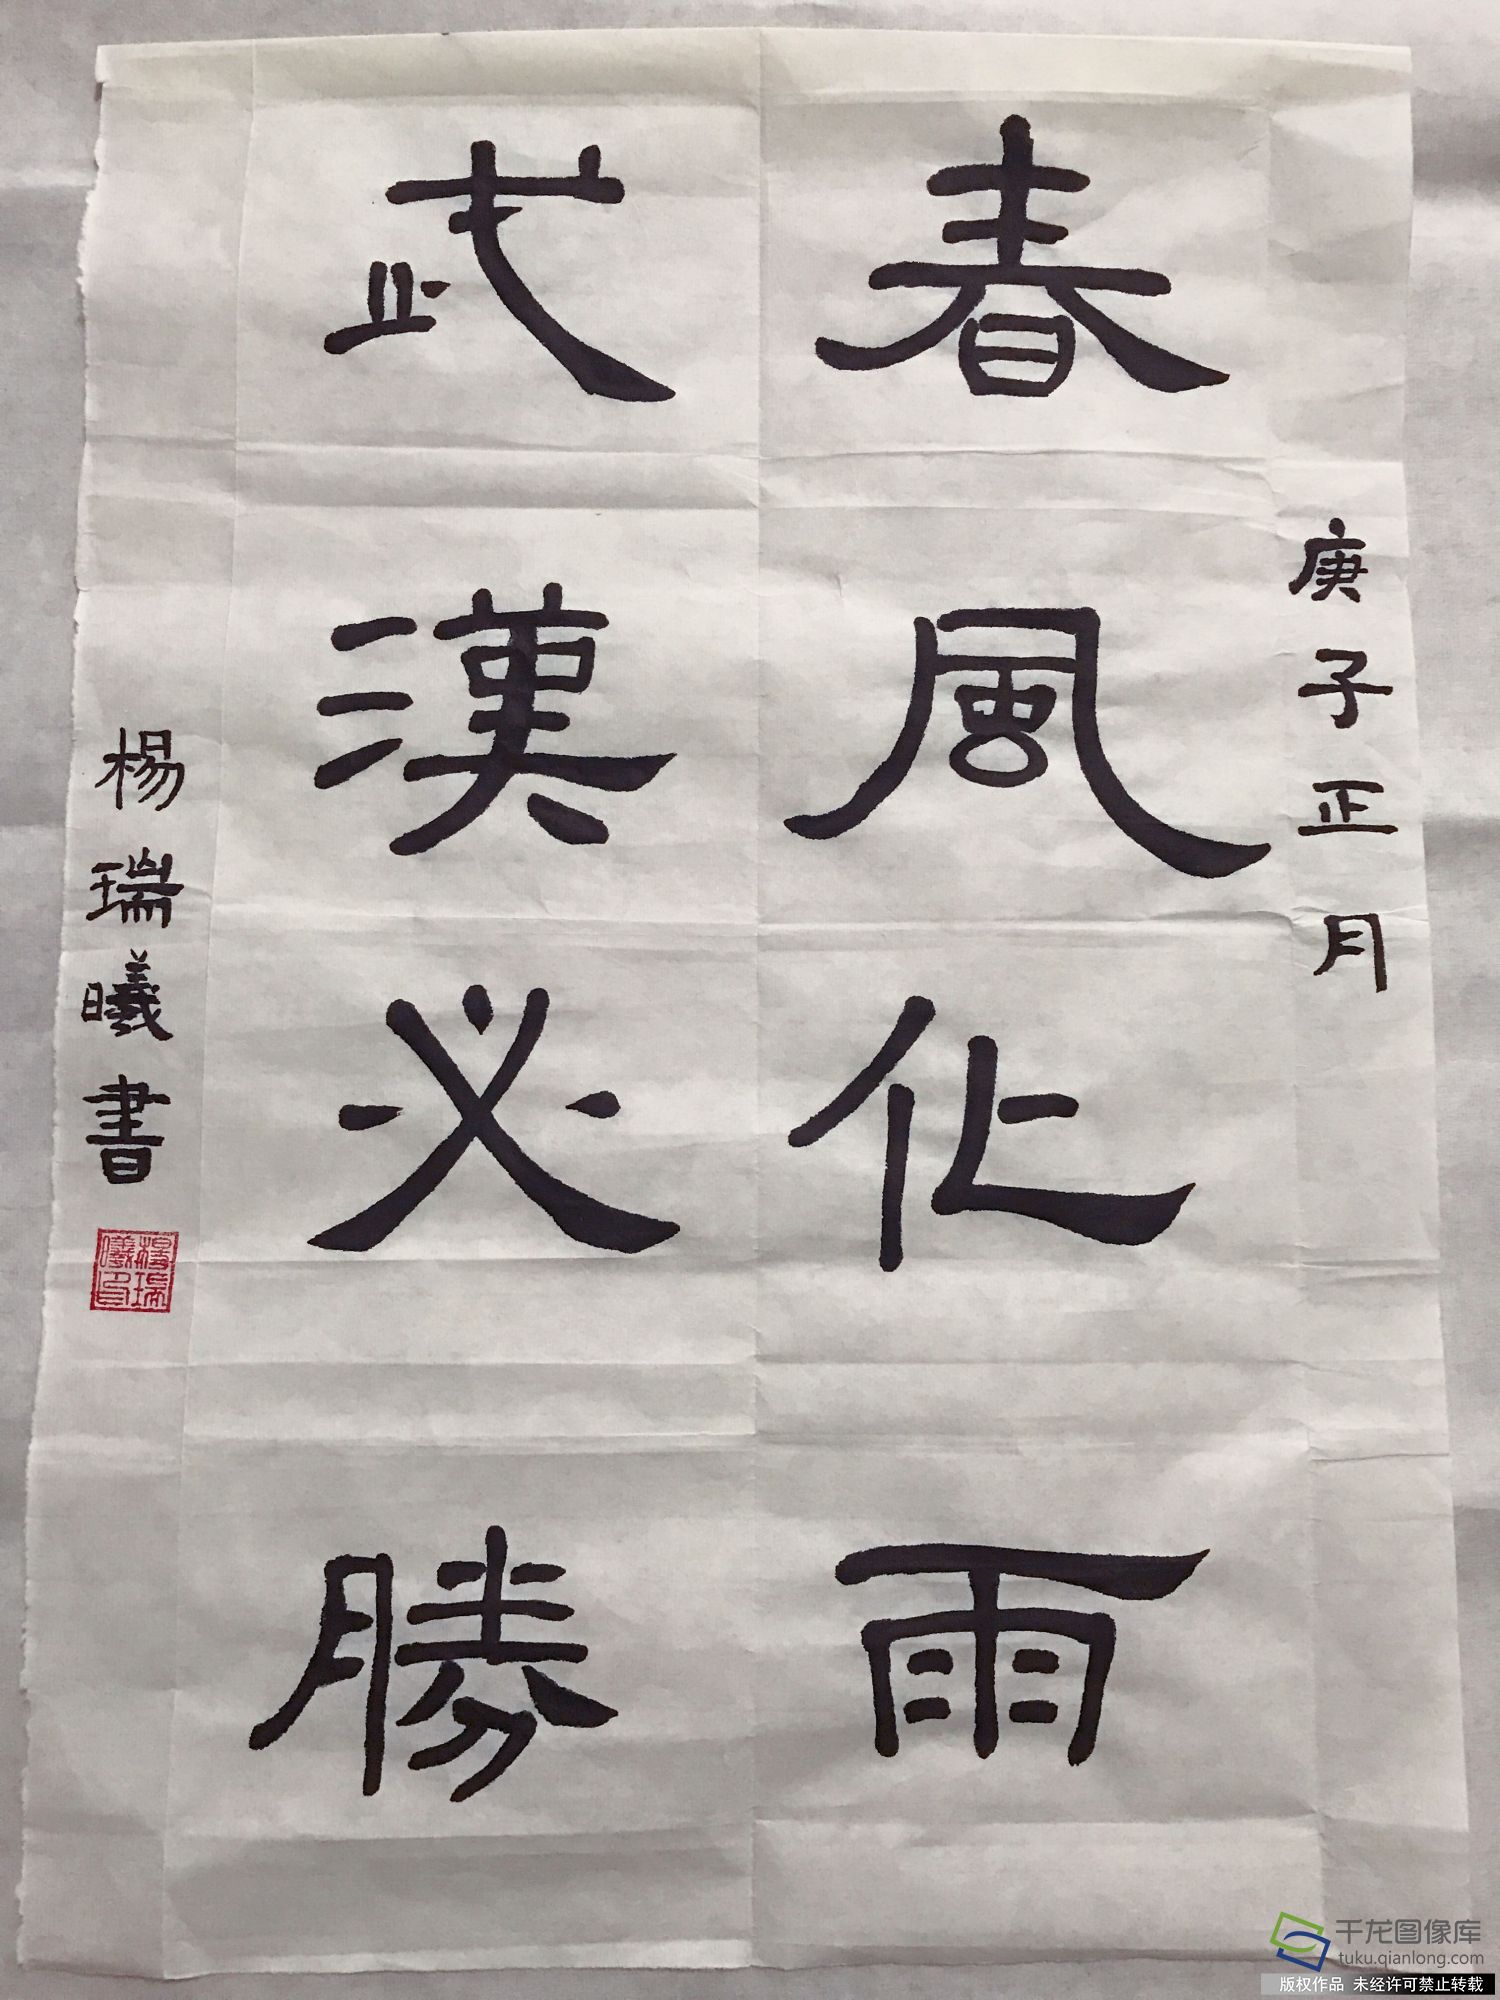 庚子正月
春風化雨
武漢必勝
楊瑞曦書
楊瑞曦印
千龙图像库
tuku.qianlong.com
版权作品 未经许可禁止转载